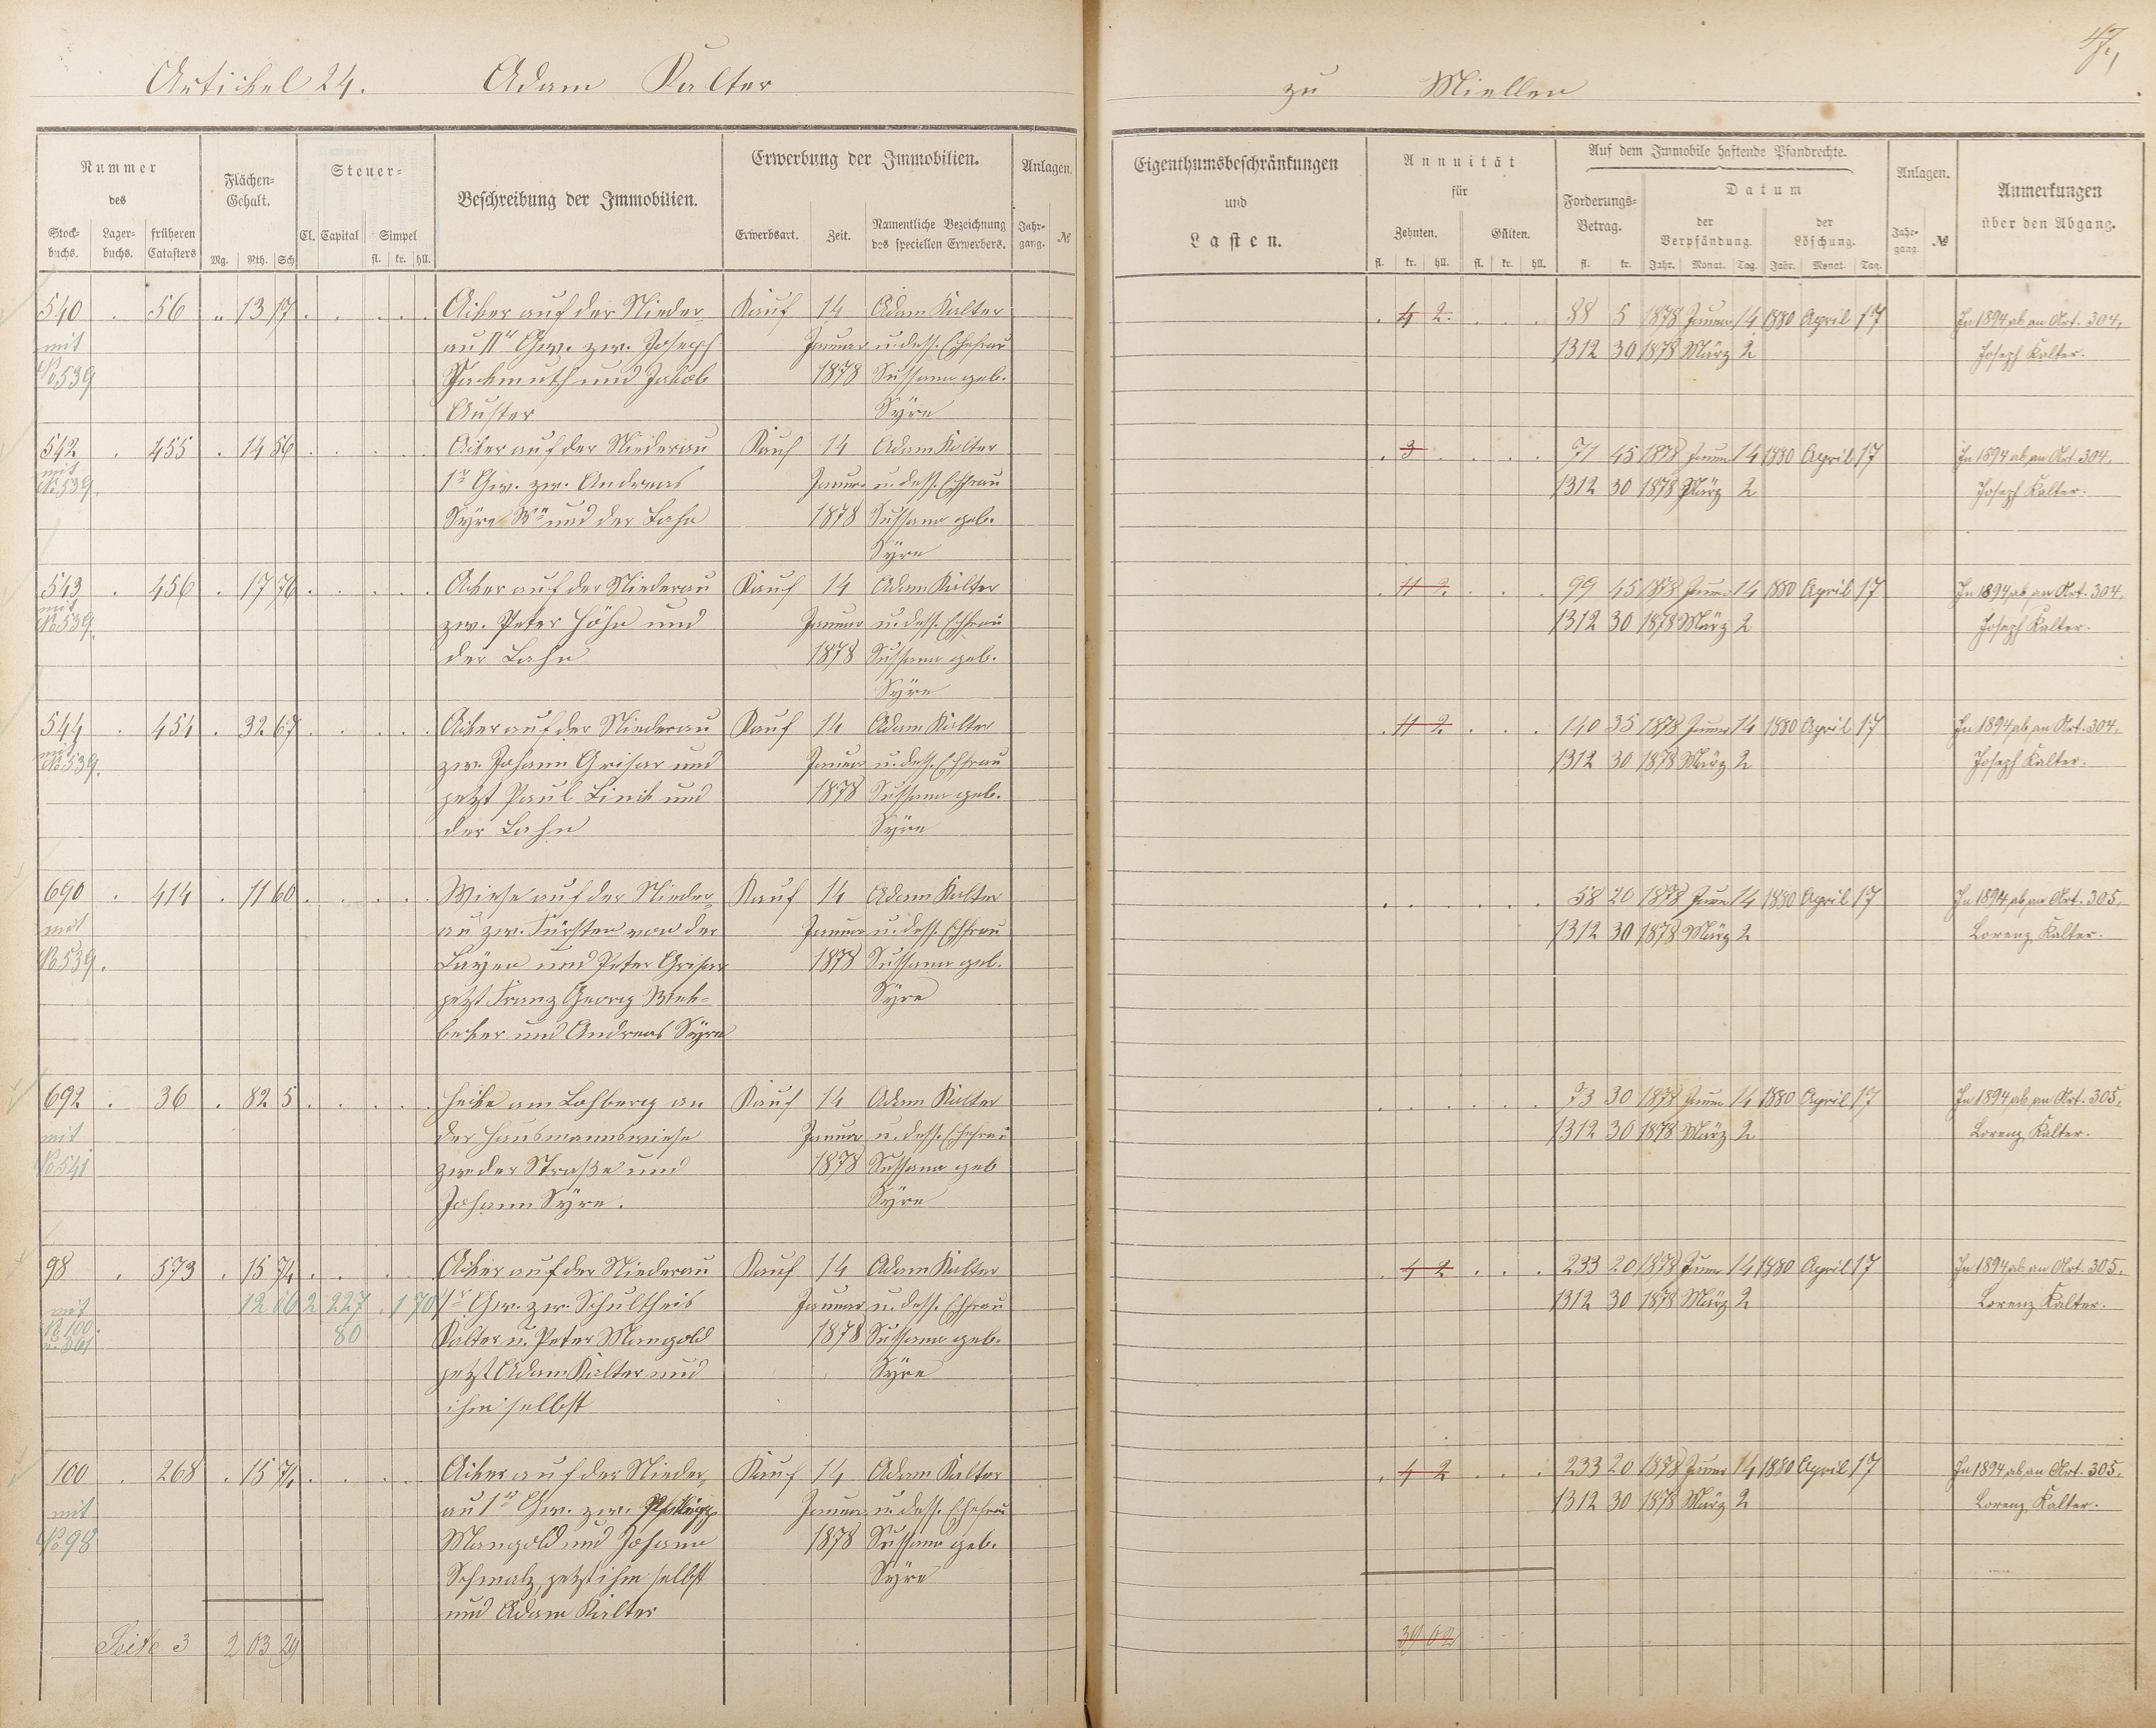 47,
Artickel 24. Adam Kalter zu Miellen
Nummer des
Stockbuchs. Lagerbuchs. früheren Catasters
Flächen-Gehalt.
Mg. Rth. Sch
Steuer-
Cl. Capital Simpel
fl. kr. hll.
Beschreibung der Immobilien.
Erwerbung der Immobilien.
Erwerbsart. Zeit. Namentliche Bezeichnung des speciellen Erwerbers.
Anlagen.
Jahrgang. №
Eigenthumsbeschränkungen und Lasten.
Annuität für
Zehnten. Gülten.
fl. kr. hll. fl. kr. hll.
Auf dem Immobile haftende Pfandrechte.
Forderungs-Betrag. Datum
der Verpfändung. der Löschung.
fl. kr. Jahr. Monat. Tag. Jahr. Monat. Tag.
Anlagen.
Jahrgang. №
Anmerkungen über den Abgang.
540 . 56 „ 13 17 . . . . . Acker auf der Nieder- Kauf 14 Adam Kalter . 4 2 . . . 88 5 1878 Januar 14 1880 April 17 In 1894 ab an Art. 304,
mit au IIr Gew. zw. Joseph Januar u. dess. Ehefrau 1312 30 1878 März 2 Joseph Kalter.
No 539 und Jakob 1878 Sussana geb.
Auster Syre
542 . 455 . 14 56 . . . . . Acker auf der Niederau Kauf 14 Adam Kalter . 3 . . . . 71 45 1878 Januar 14 1880 April 17 In 1894 ab an Art. 304.
mit 1r Gew. zw. Andreas Januar u. dess. Ehfrau 1312 30 1878 März 2 Joseph Kalter.
No 539. Syre We und der Lahn 1878 Sussana geb.
Syre
543 . 456 . 17 76 . . . . . Acker auf der Niederau Kauf 14 Adam Kalter . 11 2 . . . 99 45 1878 Januar 14 1880 April 17 In 1894 ab an Art. 304.
mit zw. Peter Höhn und Januar u. dess. Ehfrau 1312 30 1878 März 2 Joseph Kalter.
No 539. der Lahn 1878 Sussana geb.
Syre
544 . 454 . 32 67 . . . . . Acker auf der Niederau Kauf 14 Adam Kalter . 11 2 . . . 140 35 1878 Januar 14 1880 April 17 In 1894 ab an Art. 304.
mit zw. Johann Grisar und Januar u. dess. Ehfrau 1312 30 1878 März 2 Joseph Kalter.
No 539. jetzt Paul Linck und 1878 Sussana geb.
der Lahn Syre
690 . 414 . 11 60 . . . . . Wiese auf der Nieder- Kauf 14 Adam Kalter . . . . . . 58 20 1878 Januar 14 1880 April 17 In 1894 ab an Art. 305.
mit au zw. Fürsten von der Januar u. dess. Ehfrau 1312 30 1878 März 2 Lorenz Kalter.
No 539. Layen und Peter Grisar 1878 Sussana geb.
jetzt Franz Georg Syre
und Andreas Syre
692 . 36 . 82 5 . . . . . Hecke am Lohberg an Kauf 14 Adam Kalter . . . . . . 73 30 1878 Januar 14 1880 April 17 In 1894 ab an Art. 305,
mit der Hausmannswiese Januar u. dess. Ehefrau 1312 30 1878 März 2 Lorenz Kalter.
No 541 zw. der Straße und 1878 Sussana geb
Johann Syre. Syre
98 . 573 . 15 74 . . . . . Acker auf der Niederau Kauf 14 Adam Kalter . 4 2 . . . 233 20 1878 Januar 14 1880 April 17 In 1894 ab an Art. 305.
mit 12 66 2 227 . 1 70 1r Gew. zw. Schultheis Januar u. dess. Ehfrau 1312 30 1878 März 2 Lorenz Kalter.
No 100. 80 Kalter u. Peter Mangold 1878 Sussana geb.
jetzt Adam Kalter und Syre
ihm selbst
100 . 268 . 15 74 . . . . . Acker auf der Nieder- Kauf 14 Adam Kalter . 4 2 . . . 233 20 1878 Januar 14 1880 April 17 In 1894 ab an Art. 305.
mit au 1r Gew. zw. Philipp Januar u. dess. Ehefrau 1312 30 1878 März 2 Lorenz Kalter.
No 98 Mangold und Johann 1878 Sussana geb.
Schmalz, jetzt ihm selbst Syre
und Adam Kalter
Seite 3 2 03 29 39 02